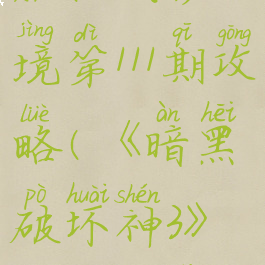 jìng dì qī gōng
境第111期攻
lüè àn hēi
略(《暗黑
pò huài shén
破坏神3》